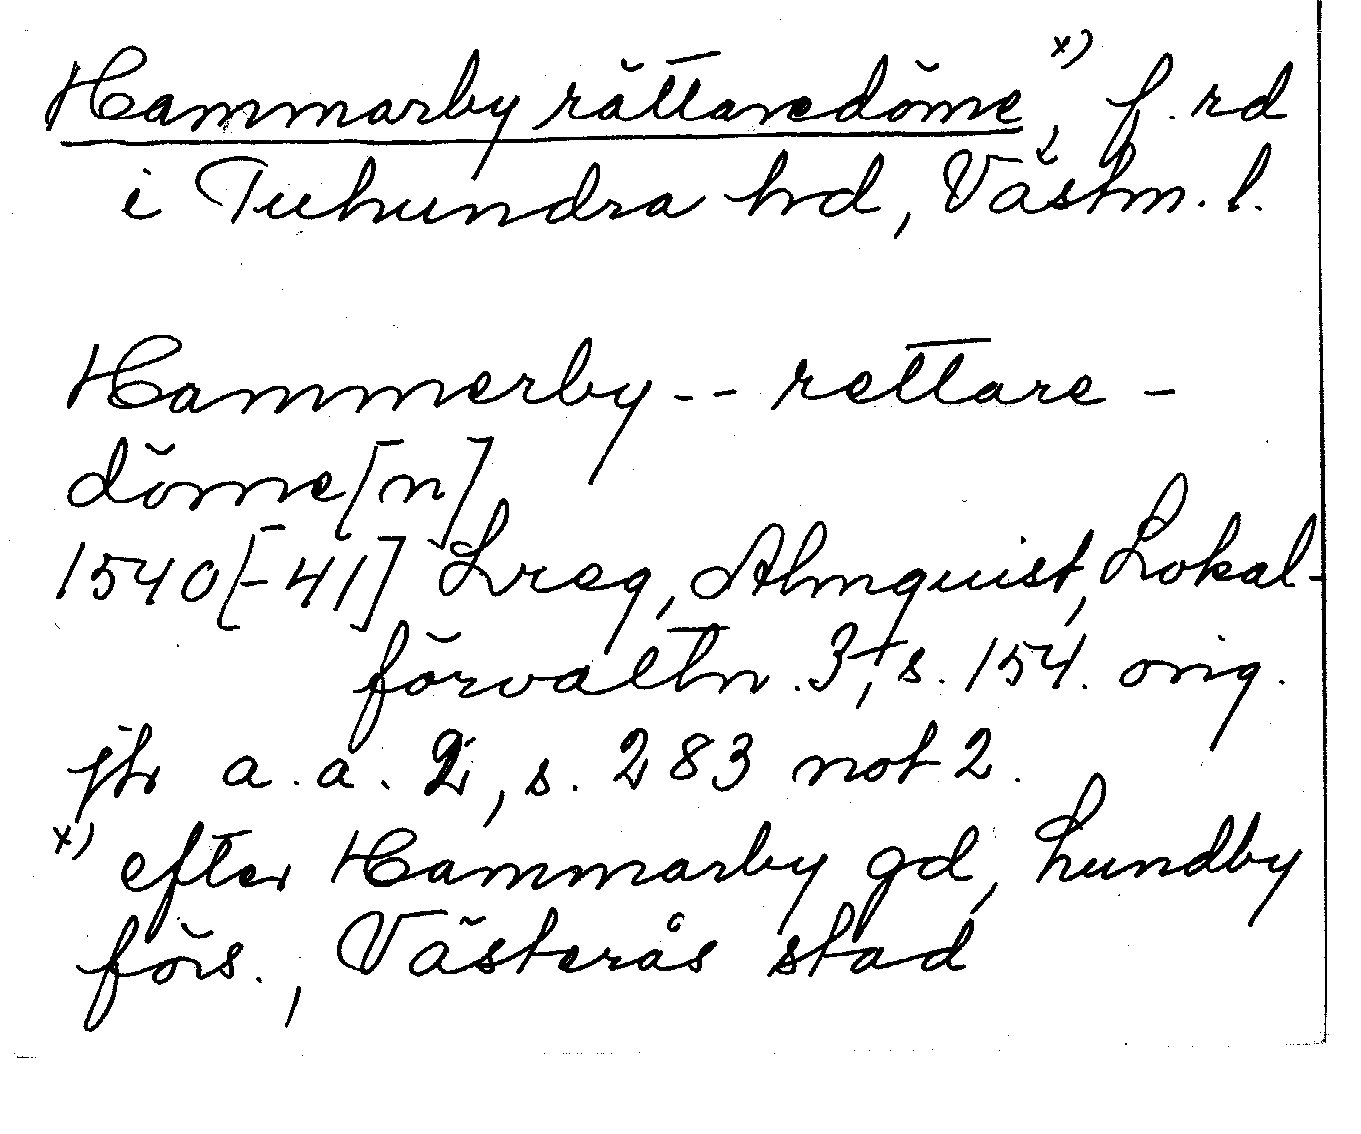 Hammarby rättaredöme x), f. rd
i Tuhundra hd, Västm. l.
Hammerby -- rettare-
döme[n]
1540[-41] Lreg, Almquist, Lokal-
förvaltn. 3, s. 154. orig.
jfr a.a. 2, s. 283 not 2.
x) efter Hammarby gd, Lundby
förs., Västerås stad